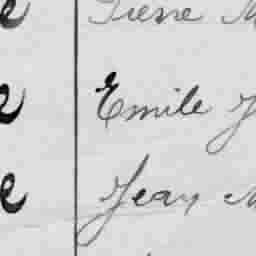 e Irene M
e Emile J
e Jean M